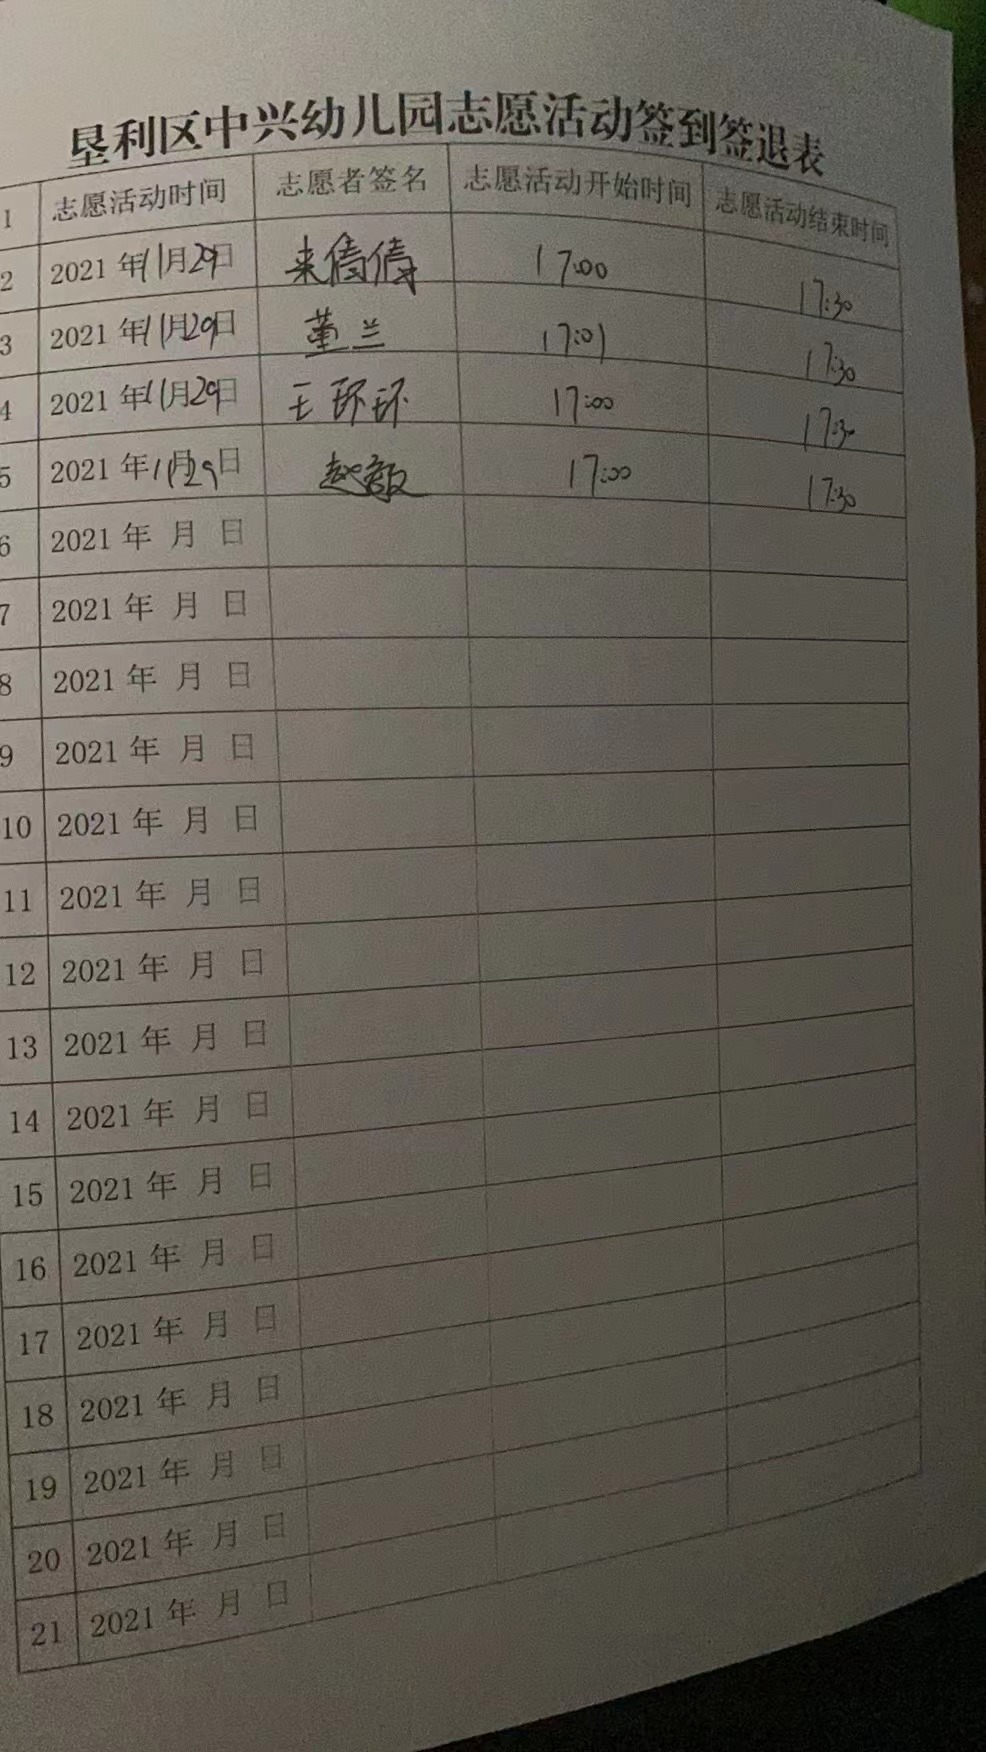 垦利区中兴幼儿园志愿活动签到签退表
1 志愿活动时间 志愿者签名 志愿活动开始时间 志愿活动结束时间
2 2021年11月29日 来倩倩 17:00 17:30
3 2021年11月29日 董兰 17:01 17:30
4 2021年11月29日 王环环 17:00 17:30
5 2021年11月29日 赵敏 17:00 17:30
6 2021年 月 日
7 2021年 月 日
8 2021年 月 日
9 2021年 月 日
10 2021年 月 日
11 2021年 月 日
12 2021年 月 日
13 2021年 月 日
14 2021年 月 日
15 2021年 月 日
16 2021年 月 日
17 2021年 月 日
18 2021年 月 日
19 2021年 月 日
20 2021年 月 日
21 2021年 月 日